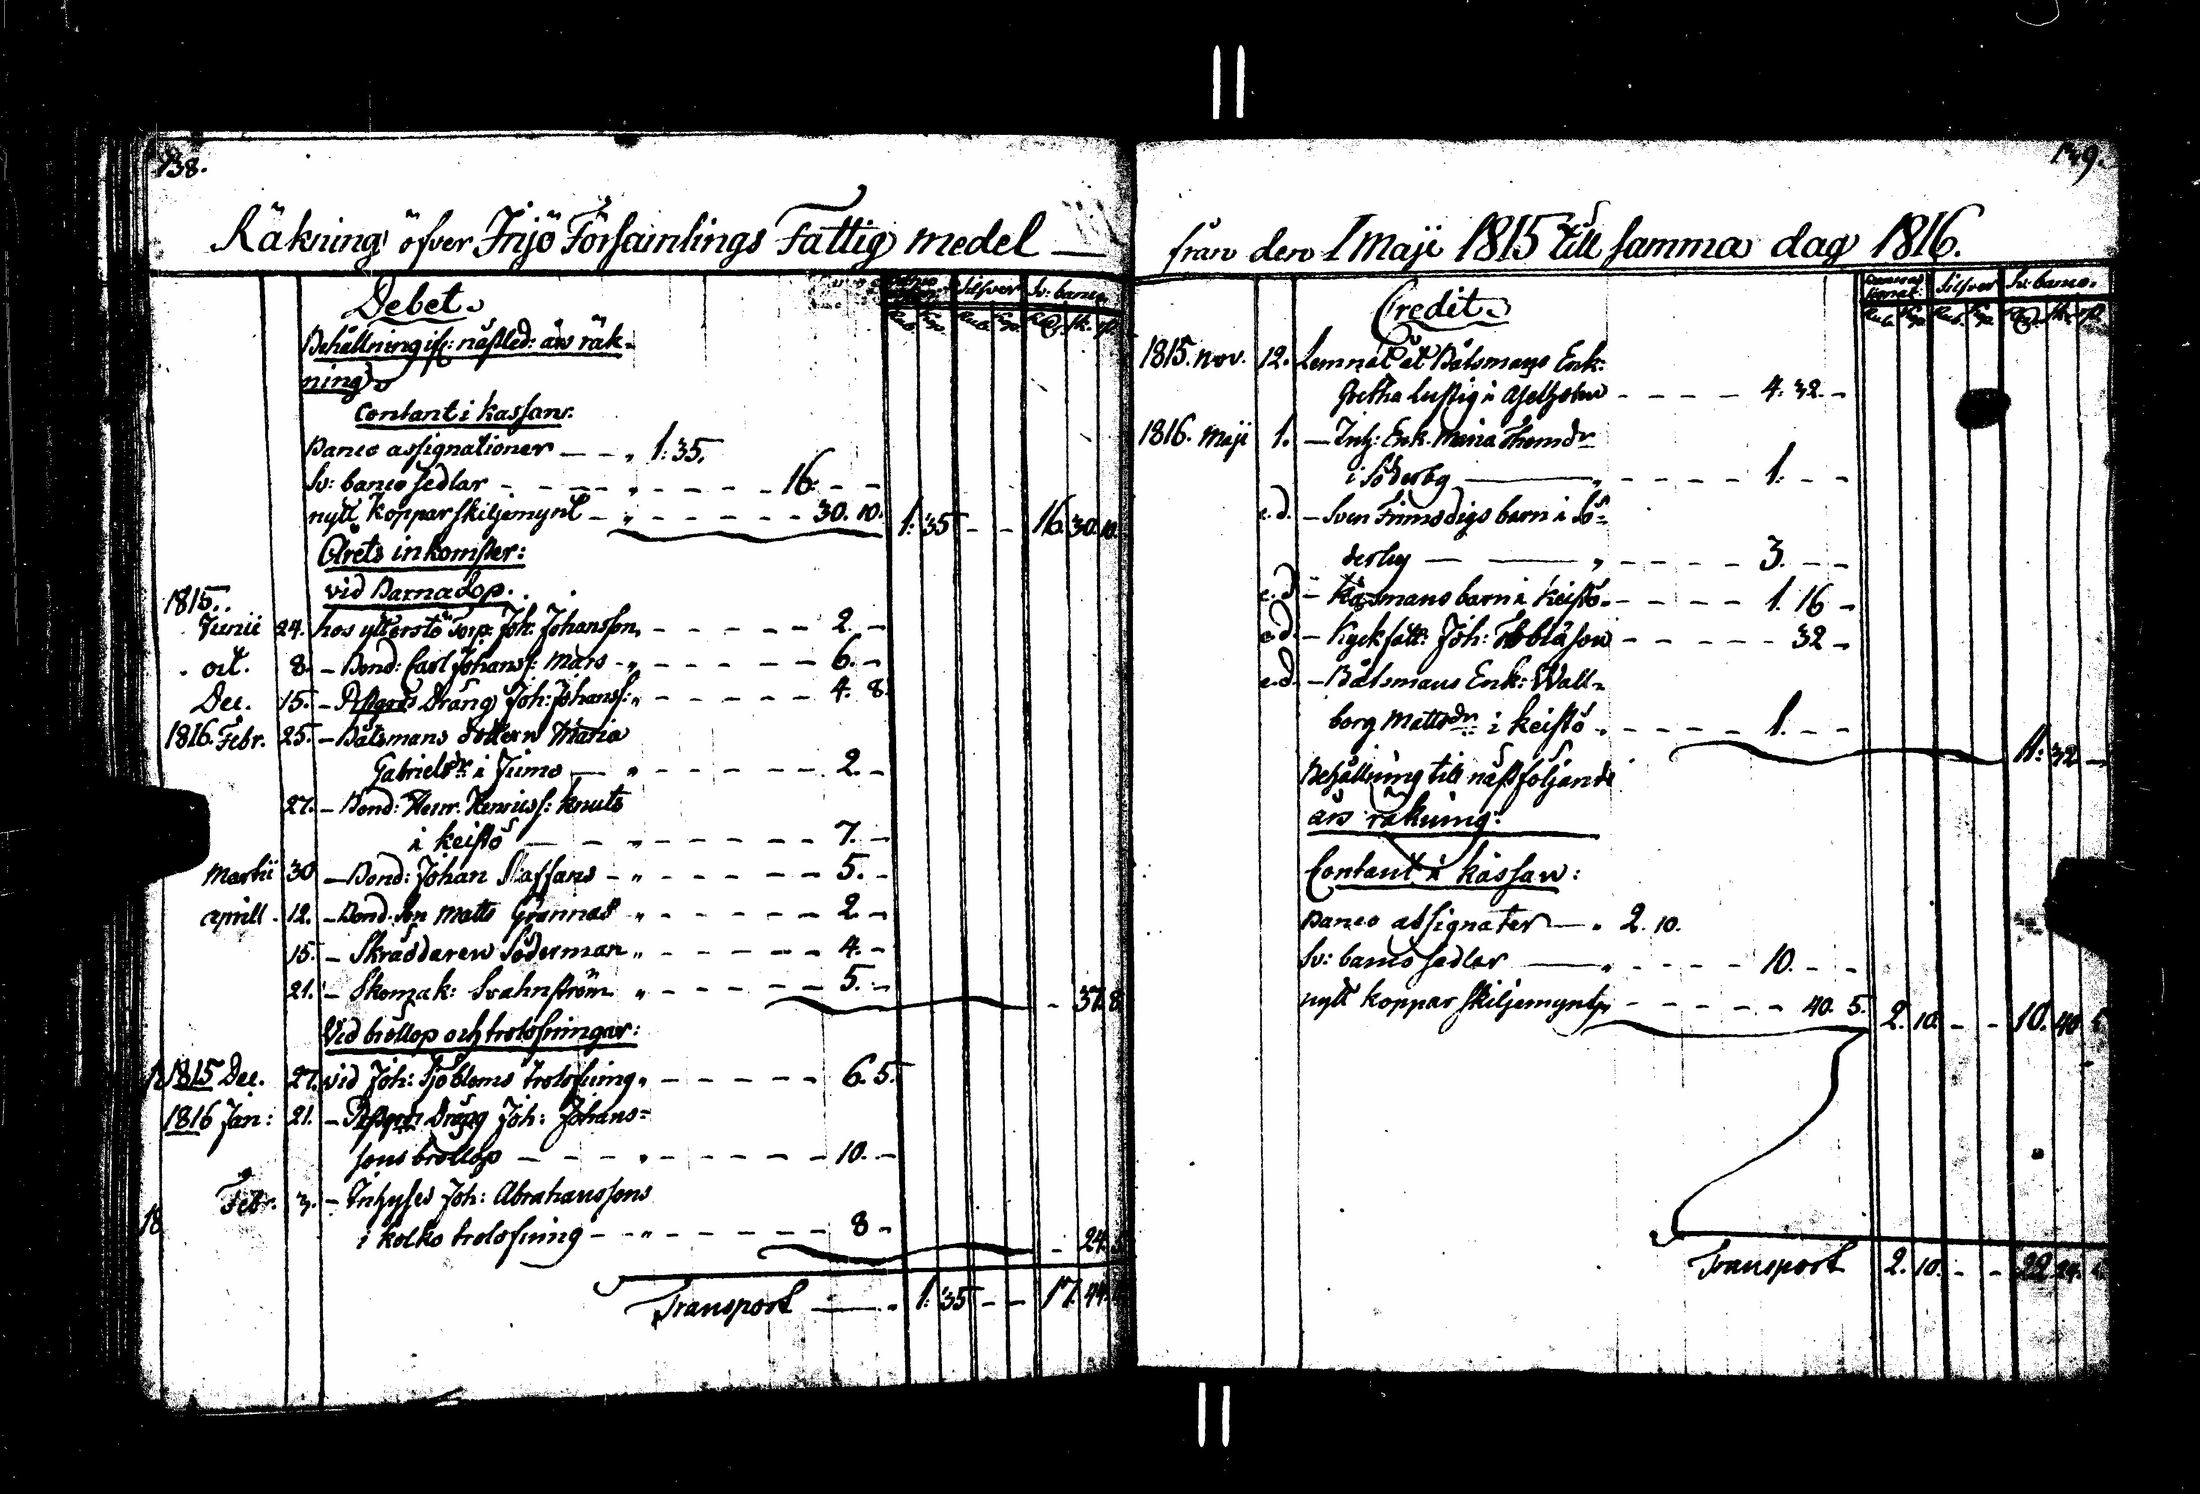 138.
Räkning öfver Iniö Församlings Fattig medel —
Debet.
Silfver Sv: banco.
Rub. Kop. Rub. Kop. Rdr. sk. rst.
Behållning ifr: nästled: års räk-
ning
Contant i kassan.
Banco assignationer — — „ 1: 35.
Sv: banco sedlar - - - - „ - - - - 16. - -
nytt kopparskiljemynt - „ - - - - - 30. 10. 1: 35 - - 16. 30. 10.
Årets inkomster:
vid Barnadop.
1815.
Junii 24. hos ytterstö Torp: Joh: Johansson - - - - - 2. -
oct. 8. - Bond: Carl Johanss: Mars - „ - - - - - 6. -
Dec. 15. - Dräng Joh: Johanss: „ - - - - - 4. 8.
1816. Febr. 25. - Båtsmans dottern Maria
Gabrielsdr i Jumo — „ - - - - - 2. -
27. - Bond: Henr. Henricss: Knuts
i keistö - - - - „ - - - - - 7. -
Martii 30 - Bond: Johan Staffans - „ - - - - - 5. -
aprill. 12. - Bond. son Matts Grannas „ - - - - - 2 -
15. - Skräddaren Söderman „ - - - - - 4. -
21. - Skomak: Svahnström „ - - - - - 5. - - 37. 8.
Vid bröllop och trolofningar:
1815 Dec. 27. vid Joh: Sjöbloms trolofning „ - - - - - 6. 5.
1816 Jan: 21. - Dräng Joh: Johans=
sons bröllop - - - - „ - - - - - 10. -
Febr. 3. - Inhyses Joh: Abrahamssons
18
i kolko trolofning - - „ - - - - - 8 - - 24. 5.
Transport —— „ 1: 35 - - 17. 44.
från den 1 Maji 1815 till samma dag 1816.
Credit.
Silfver Sv: banco.
Rub. Kop. Rub. Kop. Rdr. sk. rst.
1815. Nov. 12. Lemnat åt Båtsmans Enk:
Gretha Lustig i - - - - - 4. 32. -
1816. Maji 1. - Inh: Enk. Maria Thomdr
i Söderby ——— „ - - - - - 1. - -
e.d. - Sven Finnsdigs barn i Sö=
derby — —— „ - - - - - 3. - -
e.d. - Båtsmans barn i keistö - - - - - 1. 16 -
e.d. - Kyrkfatt: Joh: Tobiäson - - - - - 32 -
e.d. - Båtsmans Enk: Wall=
borg Mattsdr i keistö - - - - - 1. - - 11. 32 -
Behållning till nästföljande
års räkning:
Contant i kassan:
Banco assignater — „ 2. 10.
Sv: banco sedlar —— „ - - - - 10. - -
nytt koppar skiljemynt „ - - - - - 40. 5. 2. 10. - - 10. 40 5
Transport 2. 10. - - 22. 24. 5